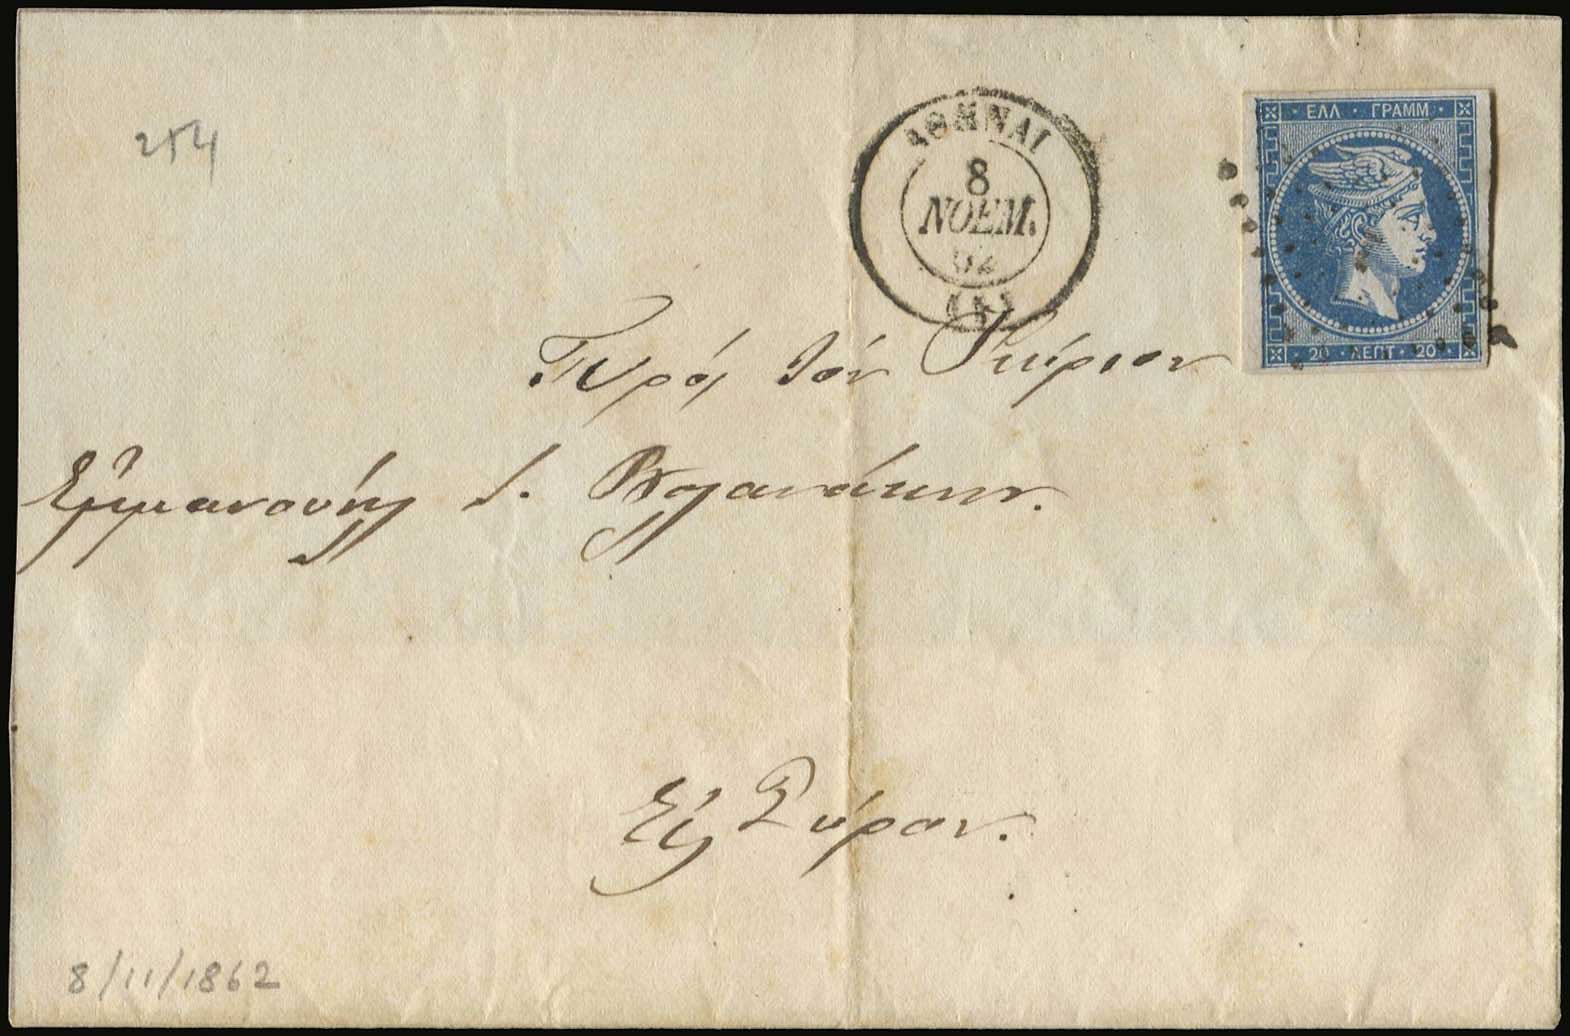 254
ΑΘΗΝΑΙ
8
ΝΟΕΜ.
62
(1)
ΕΛΛ · ΓΡΑΜΜ
20 · ΛΕΠΤ · 20
Πρός τόν Κύριον
Εμμανουήλ
Εις Σύραν.
8/11/1862